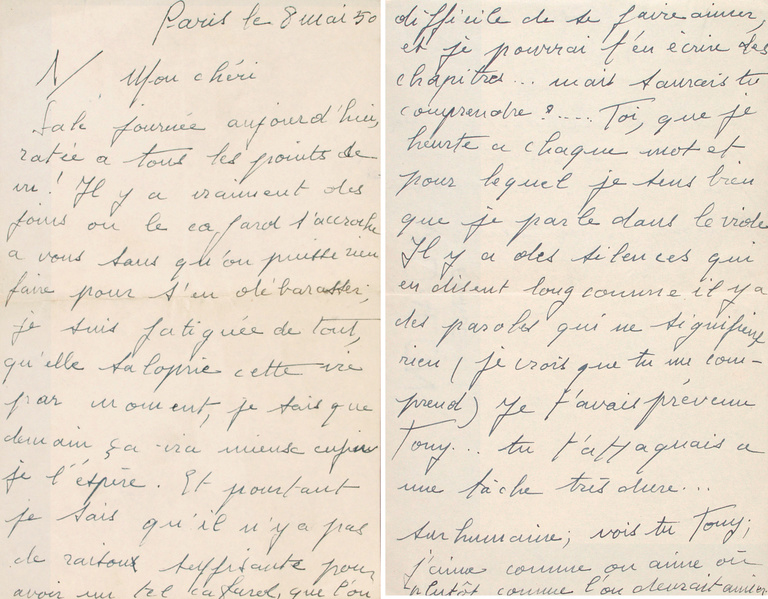 Paris le 8 mai 50
N/ Mon chéri
Sale journée aujourd'hui,
ratée a tous les points de
vu! Il y a vraiment des
jours ou le cafard s'accroche
a vous sans qu'on puisse rien
faire pour s'en débarasser,
je suis fatiguée de tout,
qu'elle saloprie cette vie
par moment, je sais que
demain ça ira mieux enfin
je l'éspère. Et pourtant
je sais qu'il n'y a pas
de raisons suffisante pour
avoir un tel cafard, que l'on
difficile de se faire aimer,
et je pourrai t'en écrire des
chapitres... mais saurais tu
comprendre?..... Toi, que je
heurte a chaque mot et
pour lequel je sens bien
que je parle dans le vide
Il y a des silences qui
en disent long comme il y a
des paroles qui ne signifient
rien (je crois que tu me com-
prend) Je t'avais prévenu
Tony... tu t'attaquais a
une tâche très dure...
surhumaine; vois tu Tony;
j'aime comme on aime ou
plutôt comme l'on devrait aimer